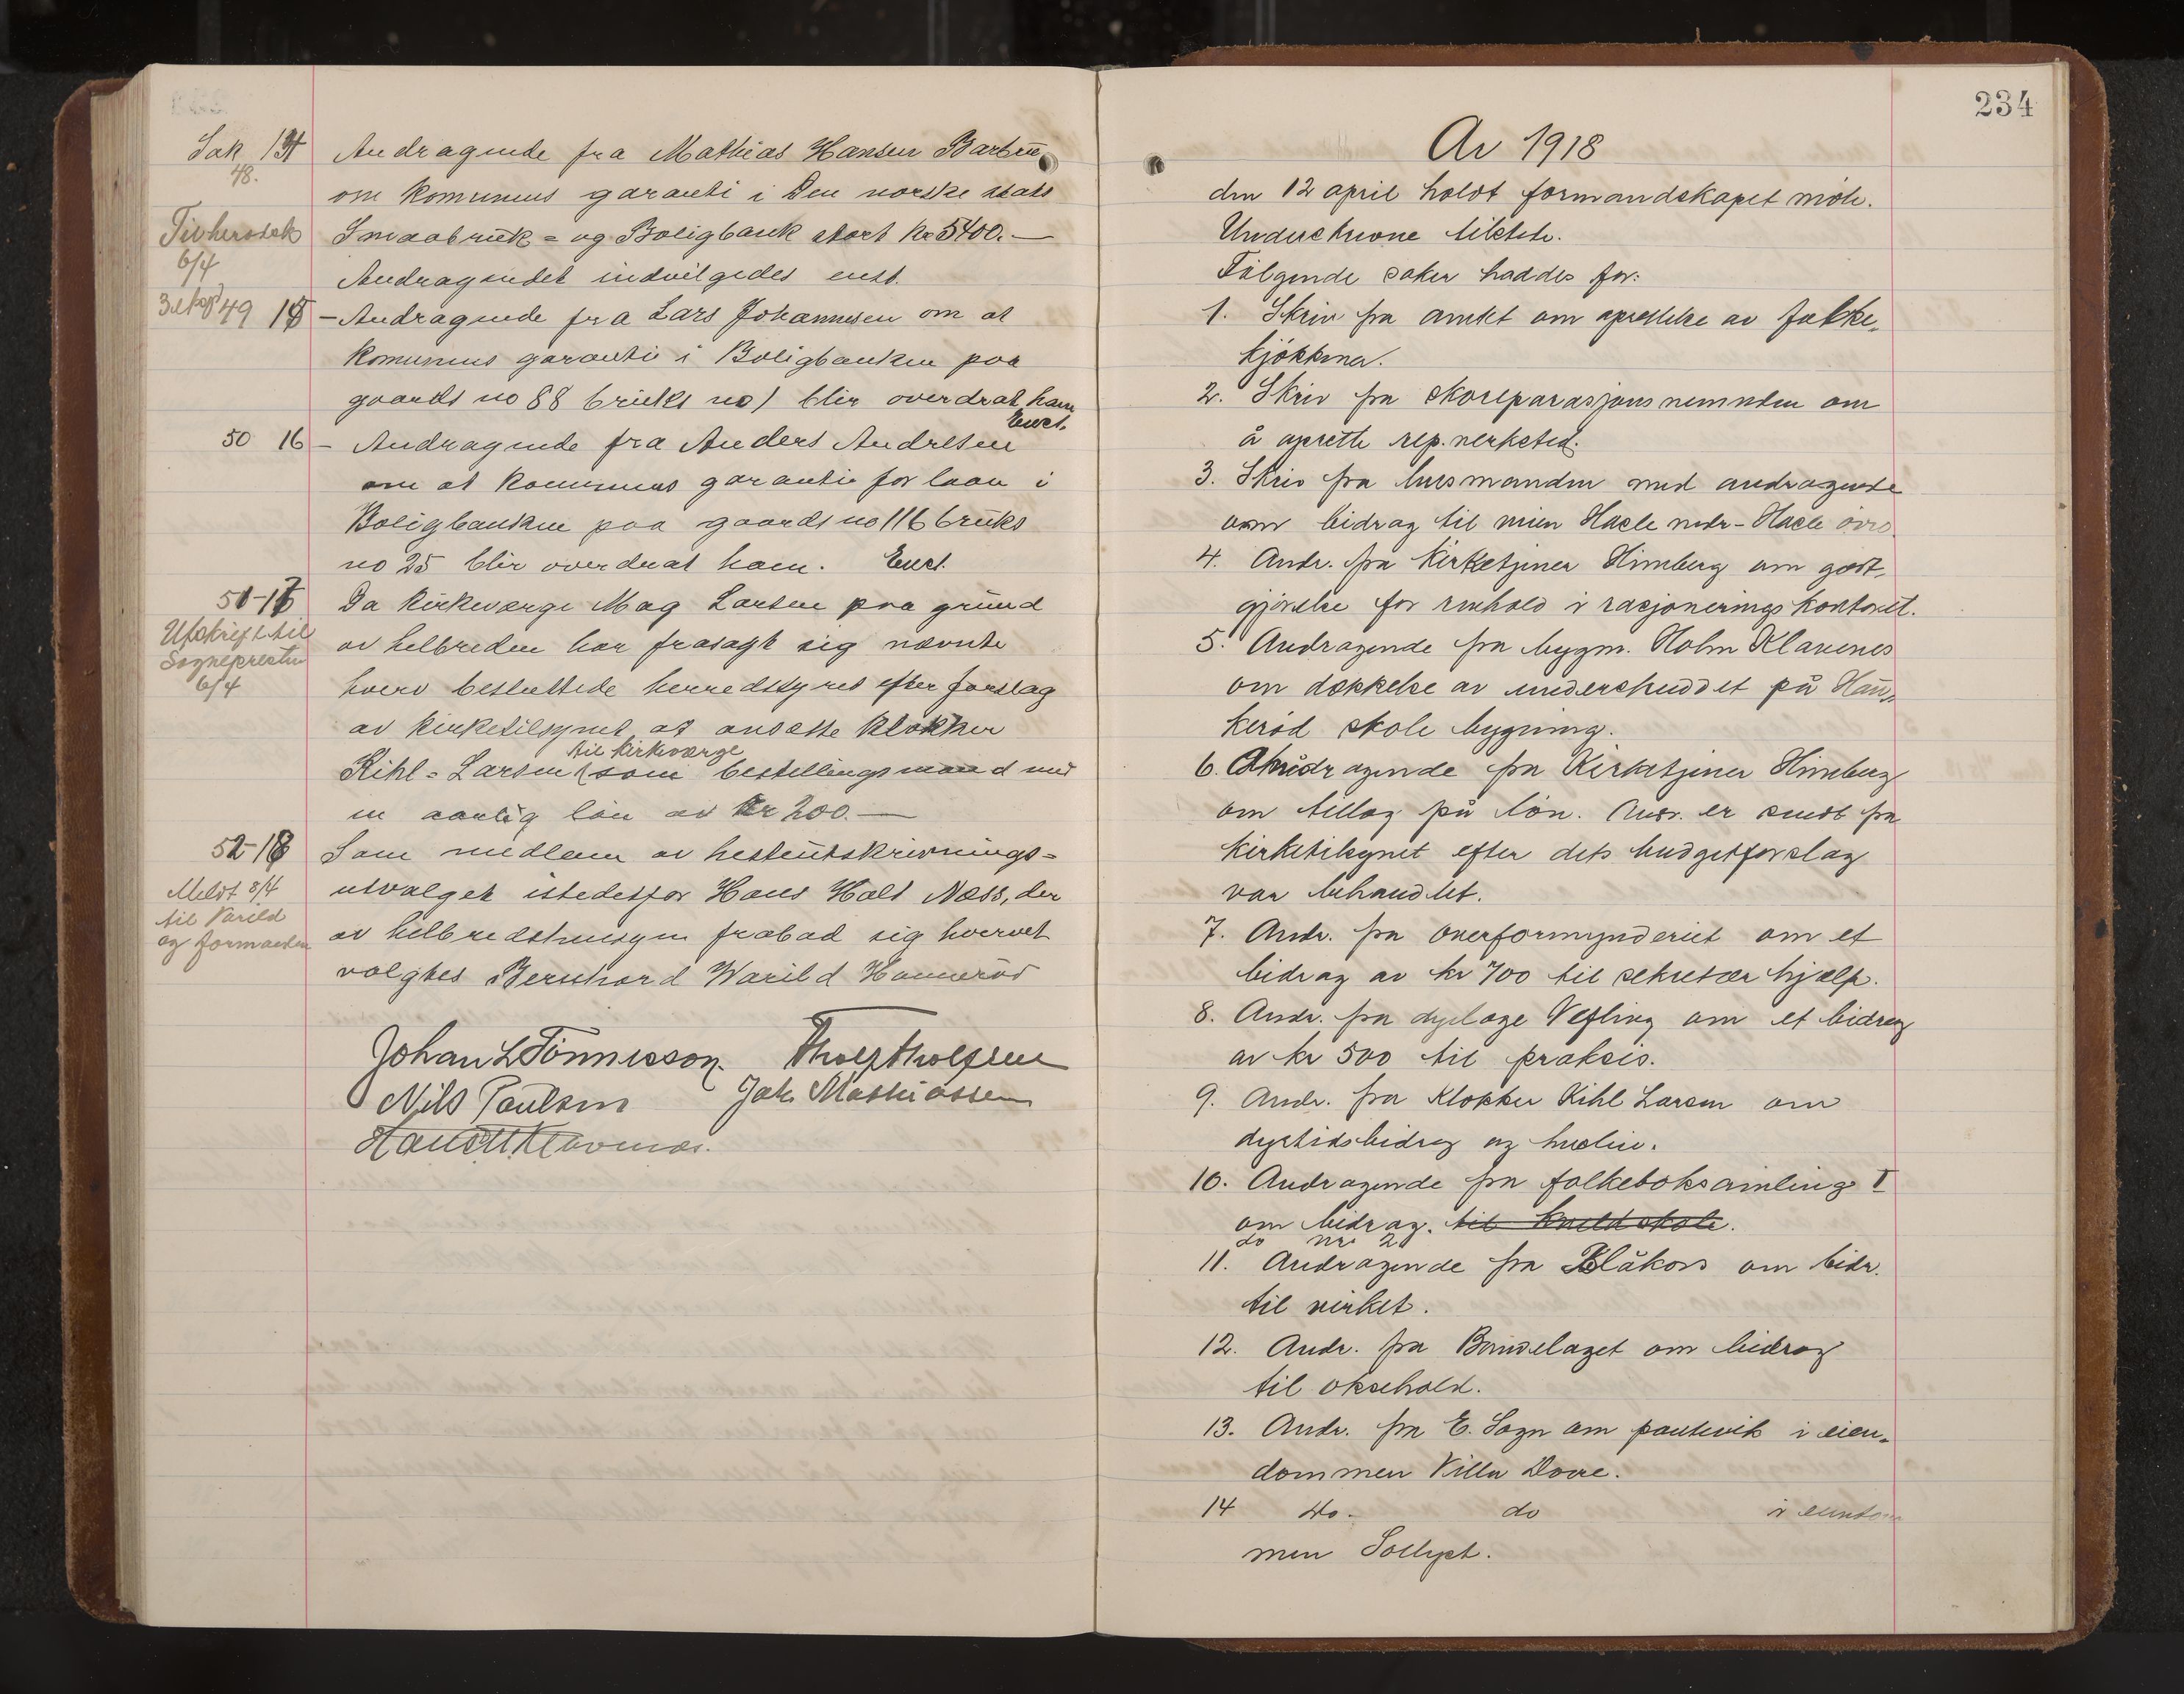 Sak 14
48.
Andragende fra Mathias Hansen
om kommunens garanti i Den norske stats
Smaabruk= og Boligbank stort kr 5400.—
6/4
Andragendet indvilgedes enst.
49 15 – Andragende fra Lars Johannesen om at
kommunens garanti i Boligbanken paa
gaards no 88 bruks no 1 blir overdrat ham
Enst.
50 16 – Andragende fra Anders Andresen
om at kommunens garanti for laan i
Boligbanken paa gaards no 116 bruks
no 25 blir overdrat ham. Enst.
51-17 Da kirkeværge Mag Larsen paa grund
Utskrift til
Sognepresten
6/4
av helbreden har frasagt sig nævnte
hverv besluttede herredsstyret efter forslag
av kirketilsynet at ansætte klokker
til kirkeværge
Kihl=Larsen som bestillingsmand med
en aarlig løn av kr 200.—
52-18 Som medlem av hesteutskrivnings=
Meldt 8/4
til Varild
og formanden
utvalget istedetfor Hans Holt Næss, der
av helbredshensyn frabad sig hvervet
valgtes Bernhard Warild Hannerød
Johan L Tönnesson. Thv Thvesen
Nils Paulsen Joh. Mathiassen
234
År 1918
den 12 april holdt formandskapet möte.
Underskrevne tilstede.
Følgende saker haddes for:
1. Skriv fra amtet om oprettelse av folke-
kjökkener.
2. Skriv fra skoreparasjonsnemnden om
å oprette rep.verksted.
3. Skriv fra lensmanden med andragende
om bidrag til veien Hasle nedr-Hasle övre.
4. Andr. fra Kirketjener Himberg om godt-
gjörelse for renhold i rasjoneringskontoret.
5. Andragende fra bygm. Holm Klavenes
om dækkelse av underskuddet på Hau-
keröd skole bygning.
6. Andragende fra Kirketjener Himberg
om tillæg på lön. Andr. er sendt fra
Kirketilsynet efter dets budgetforslag
var behandlet.
7. Andr. fra Overformynderiet om et
bidrag av kr 700 til sekretær hjælp.
8. Andr. fra dyrlæge Vefling om et bidrag
av kr 500 til praksis.
9. Andr. fra Klokker Kihl Larsen om
dyrtidsbidrag og husleie.
10. Andragende fra folkeboksamling I
om bidrag. til kveldskole.
do nr. 2
11. Andragende fra Blåkors om bidr.
til virket.
12. Andr. fra Bondelaget om bidrag
til oksehold.
13. Andr. fra E. Sogn om pantevik i eien-
dommen Villa Dovre.
14 do. do i eiendom
men Sollyst.